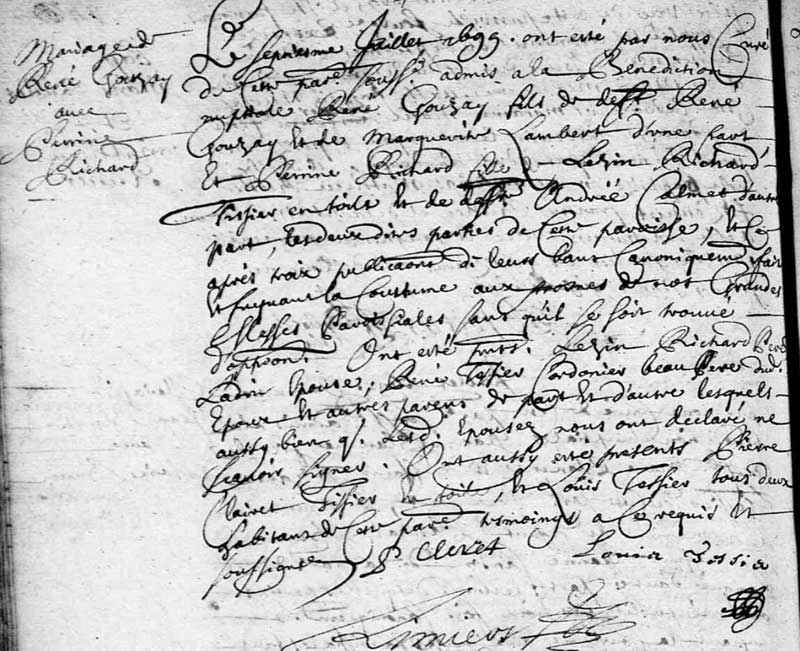 Mariage de
René Gouzay
avec
Perrine
Richard
Le septiesme Juillet 1699. ont esté par nous Curé
de cette par.e souss.é admis a la Benediction
nuptiale René Gouzay fils de deff.t René
Gouzay et de Marguerite Lambert d'une part
Et Perrine Richard fille de Lezin Richard
Tissier en toile et de deff.te Andrée Calmet d'autre
part, les deux dites parties de cette paroisse, et ce
aprés trois publicaons de leurs bans canoniquem.t fait
et suyvant la coustume aux prosnes de nos Grandes
Messes Paroissiales sans qu'il se soit trouvé
d'opposon. Ont esté pnts. Lezin Richard Pere
Ladite Epouse, René Tessier Cordonier beau Pere dud.
Epoux et autres parens de part et d'autre lesquels
aussy bien q. Lesd. Epousez nous ont declaré ne
sçavoir signer. Ont aussy esté presents Pierre
Clairet Tissier en toile, et Louis Tessier tous deux
habitans de cette par.e tesmoings a ce requis et
soussignez
P Cleret Louis Tessie